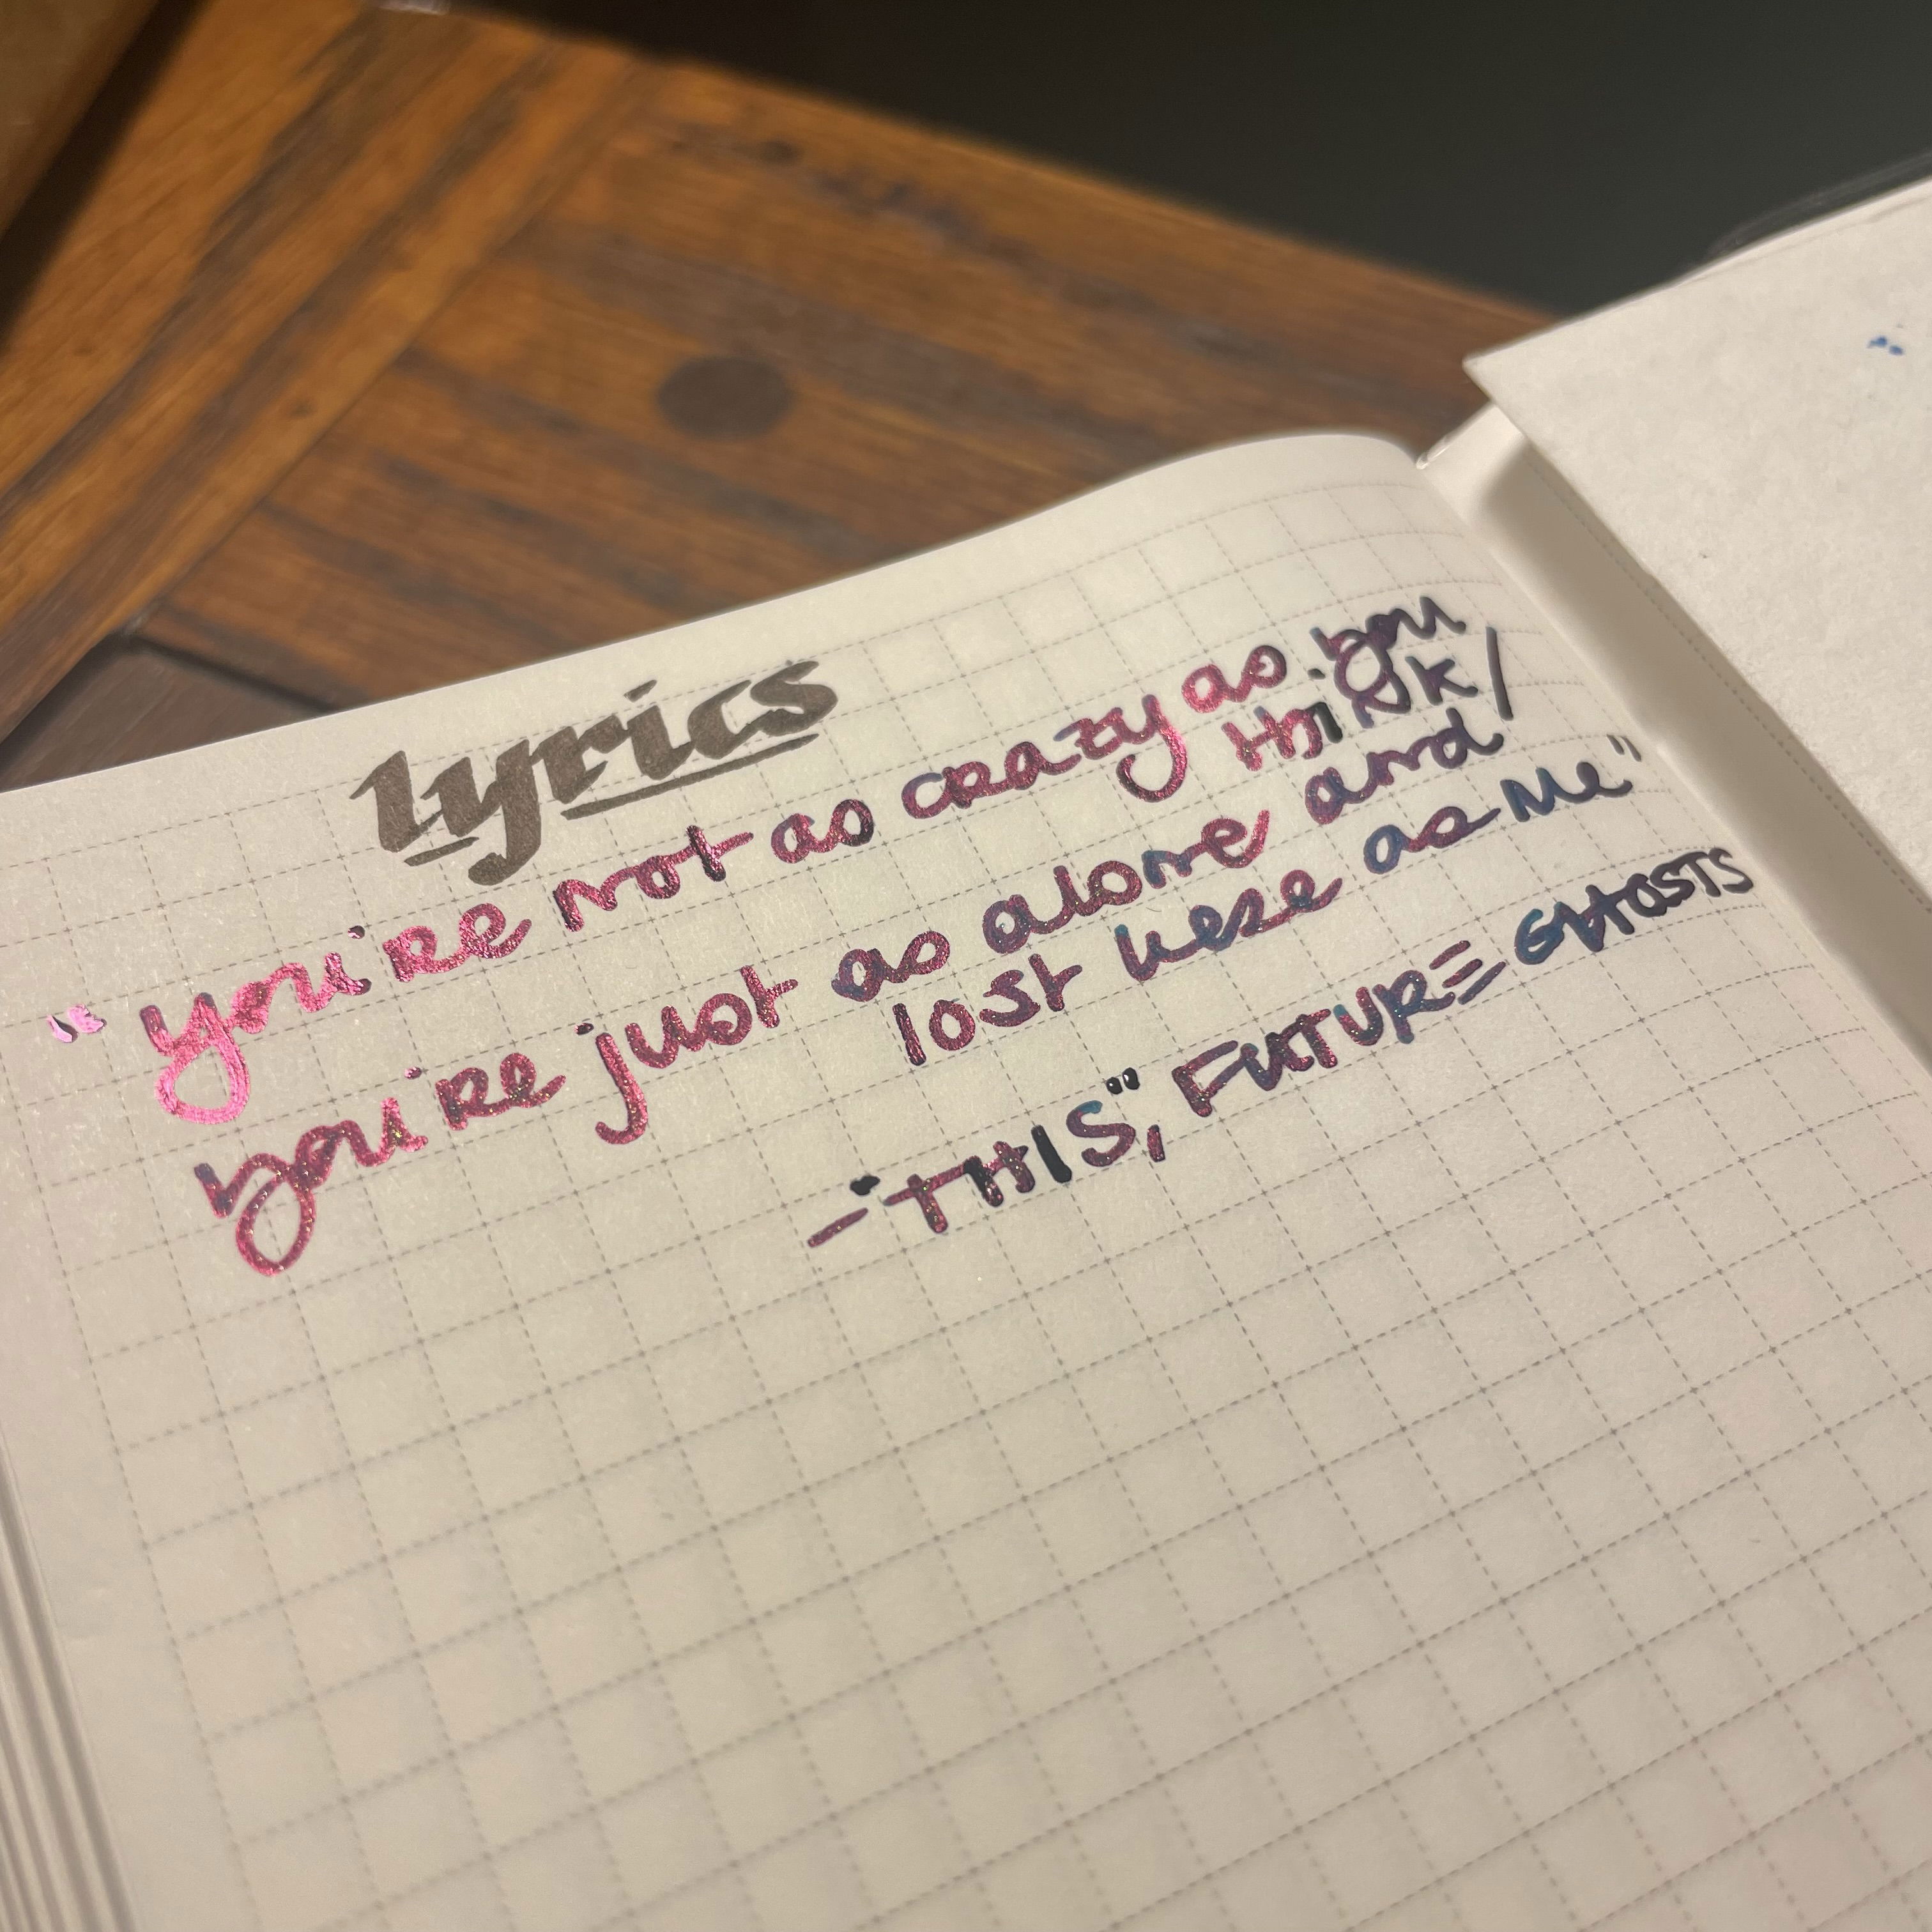 lyrics
"you're not as crazy as you
think/
you're just as alone and
lost here as me"
-"THIS", FUTURE GHOSTS